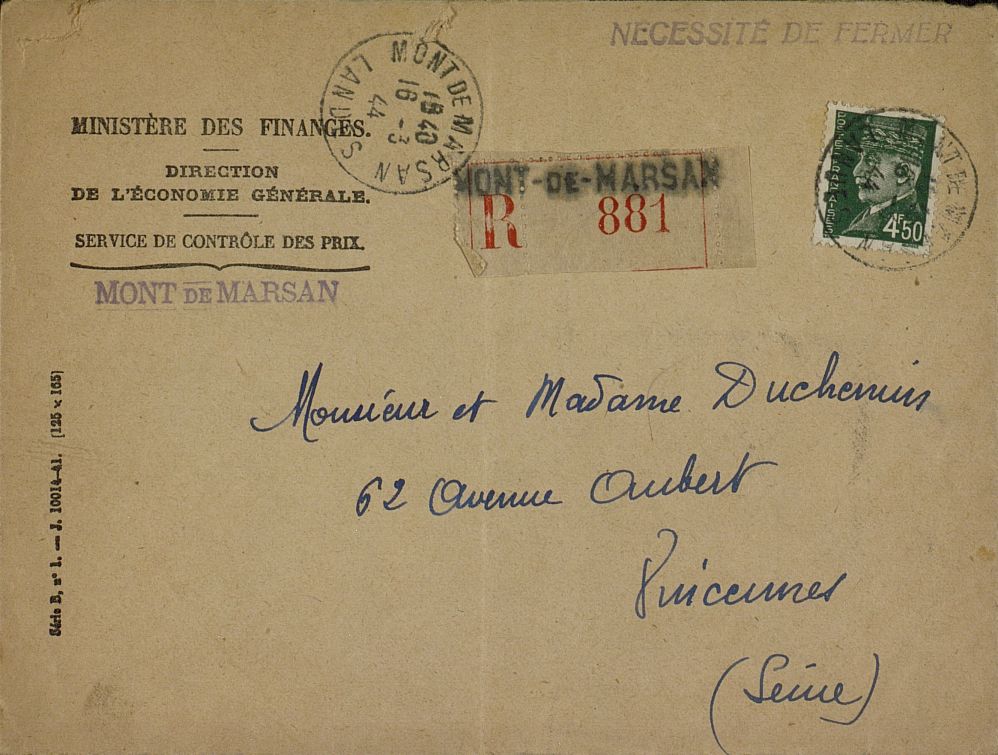 NECESSITÉ DE FERMER
MONT DE MARSAN
LANDES
1840
16 -3
44
MINISTÈRE DES FINANCES.
DIRECTION
DE L'ÉCONOMIE GÉNÉRALE.
SERVICE DE CONTRÔLE DES PRIX.
MONT DE MARSAN
MONT-DE-MARSAN
R 881
4F50
Monsieur et Madame Duchemin
62 Avenue Aubert
Vincennes
(Seine)
Série B, n° 1. — J. 10014-41. [125 × 165]